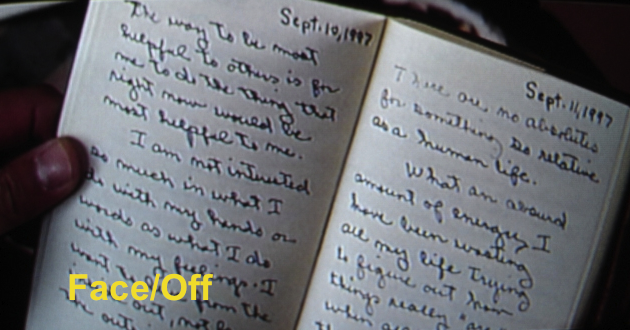 Sept. 10, 1997
The way to be most
helpful to others is for
me to do the thing that
right now would be
most helpful to me.
I am not interested
so much in what I
do with my hands or
words as what I do
with my feelings. I
want to from the
out, not
Sept. 11, 1997
There are no absolutes
for something so relative
as a human life.
What an absurd
amount of energy I
have been wasting
all my life trying
to figure out how
things really
when
Face/Off